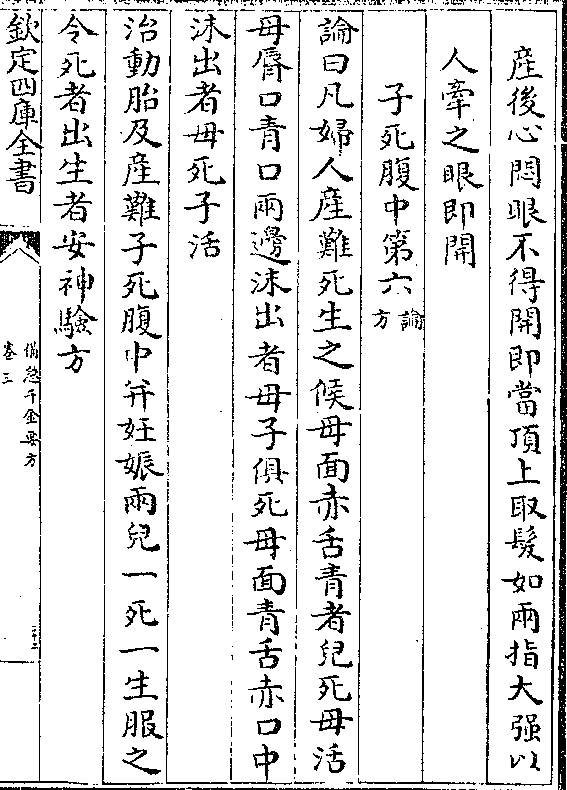 産後心悶眼不得開即當頂上取髮如兩指大强以
人牽之眼即開
子死腹中第六論方
論曰凡婦人産難死生之候母面赤舌青者兒死母活
母脣口青口兩邊沫出者母子俱死母面青舌赤口中
沫出者母死子活
治動胎及産難子死腹中并妊娠兩兒一死一生服之
令死者出生者安神驗方
欽定四庫全書
備急千金要方
卷三